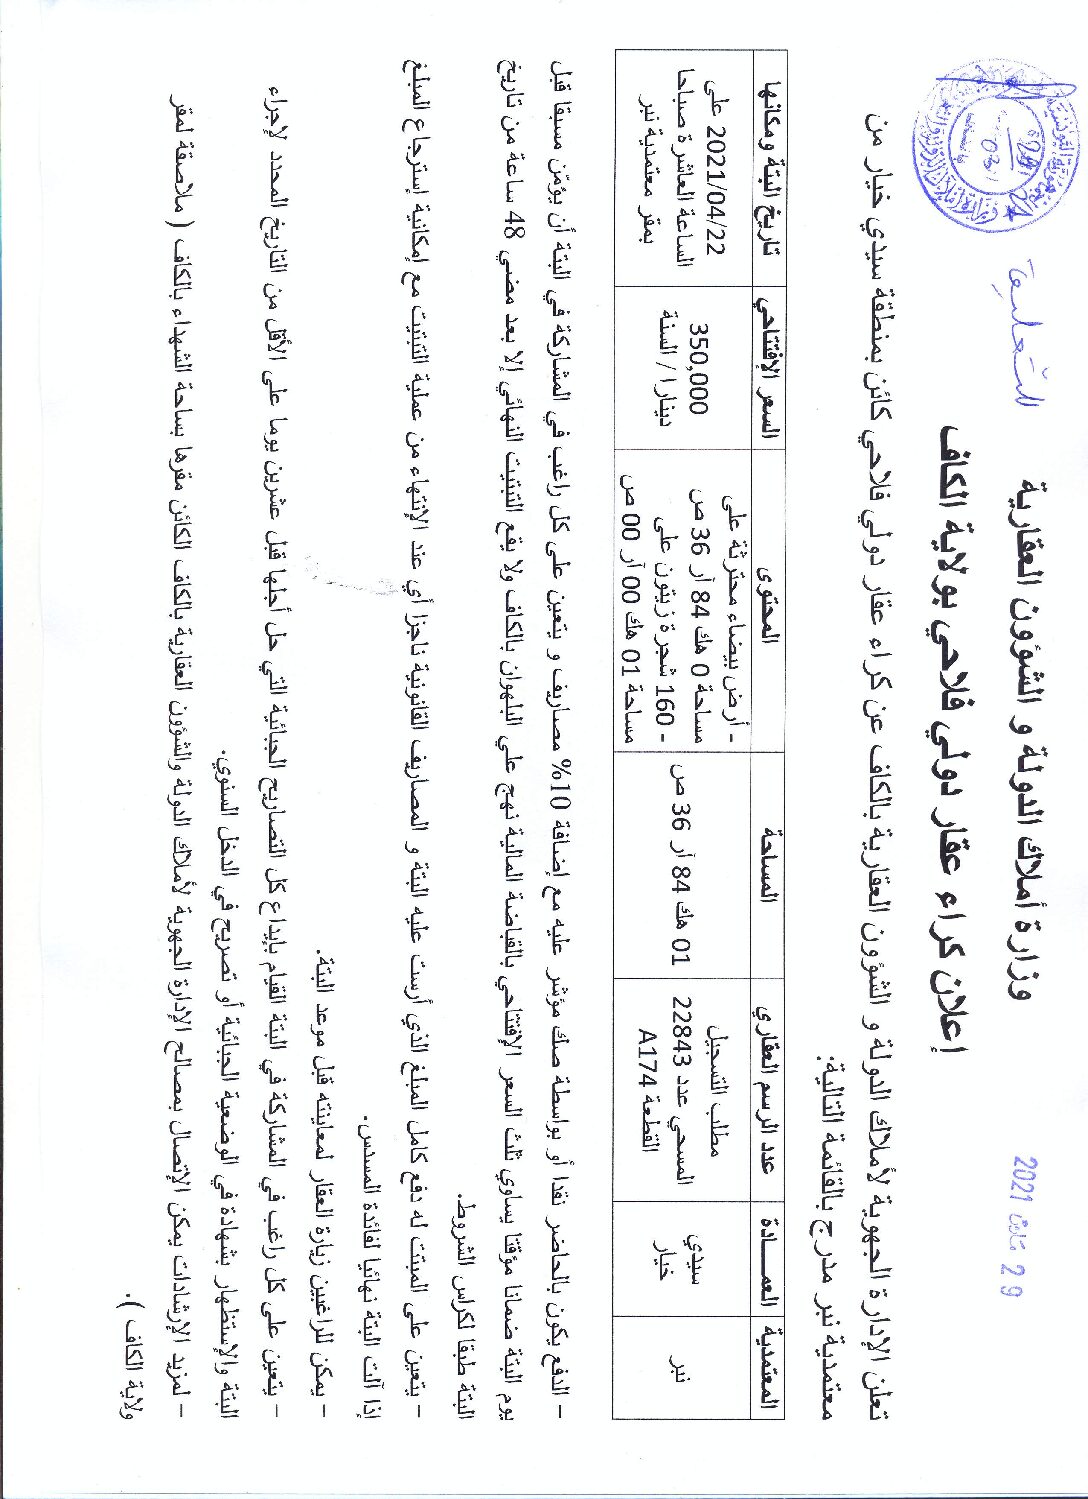 29 مارس 2021
التعليق
وزارة أملاك الدولة و الشؤون العقارية
إعلان كراء عقار دولي فلاحي بولاية الكاف
تعلن الإدارة الجهوية لأملاك الدولة و الشؤون العقارية بالكاف عن كراء عقار دولي فلاحي كائن بمنطقة سيدي خيار من
معتمدية نبر مدرج بالقائمة التالية:
المعتمدية العمـــادة عدد الرسم العقاري المساحة المحتوى السعر الإفتتاحي تاريخ البتة ومكانها
نبر
سيدي
خيار
مطلب التسجيل
المسحي عدد 22843
القطعة A174
01 هك 84 آر 36 ص
- أرض بيضاء محترثة على
مساحة 0 هك 84 آر 36 ص
- 160 شجرة زيتون على
مساحة 01 هك 00 آر 00 ص
350,000
دينارا / السنة
2021/04/22 على
الساعة العاشرة صباحا
بمقر معتمدية نبر
– الدفع يكون بالحاضر نقدا أو بواسطة صك مؤشر عليه مع إضافة 10% مصاريف و يتعين على كل راغب في المشاركة في البتة أن يؤمن مسبقا قبل
يوم البتة ضمانا مؤقتا يساوي ثلث السعر الإفتتاحي بالقباضة المالية نهج علي البلهوان بالكاف ولا يقع التبتيت النهائي إلا بعد مضي 48 ساعة من تاريخ
البتة طبقا لكراس الشروط.
– يتعين على المبتت له دفع كامل المبلغ الذي أرست عليه البتة و المصاريف القانونية ناجزا أي عند الإنتهاء من عملية التبتيت مع إمكانية إسترجاع المبلغ
إذا آلت البتة نهائيا لفائدة المسدس.
– يمكن للراغبين زيارة العقار لمعاينته قبل موعد البتة.
– يتعين على كل راغب في المشاركة في البتة القيام بإيداع كل التصاريح الجبائية التي حل أجلها قبل عشرين يوما على الأقل من التاريخ المحدد لإجراء
البتة والإستظهار بشهادة في الوضعية الجبائية أو تصريح في الدخل السنوي.
– لمزيد الإرشادات يمكن الإتصال بمصالح الإدارة الجهوية لأملاك الدولة والشؤون العقارية بالكاف الكائن مقرها بساحة الشهداء بالكاف ( ملاصقة لمقر
ولاية الكاف ).